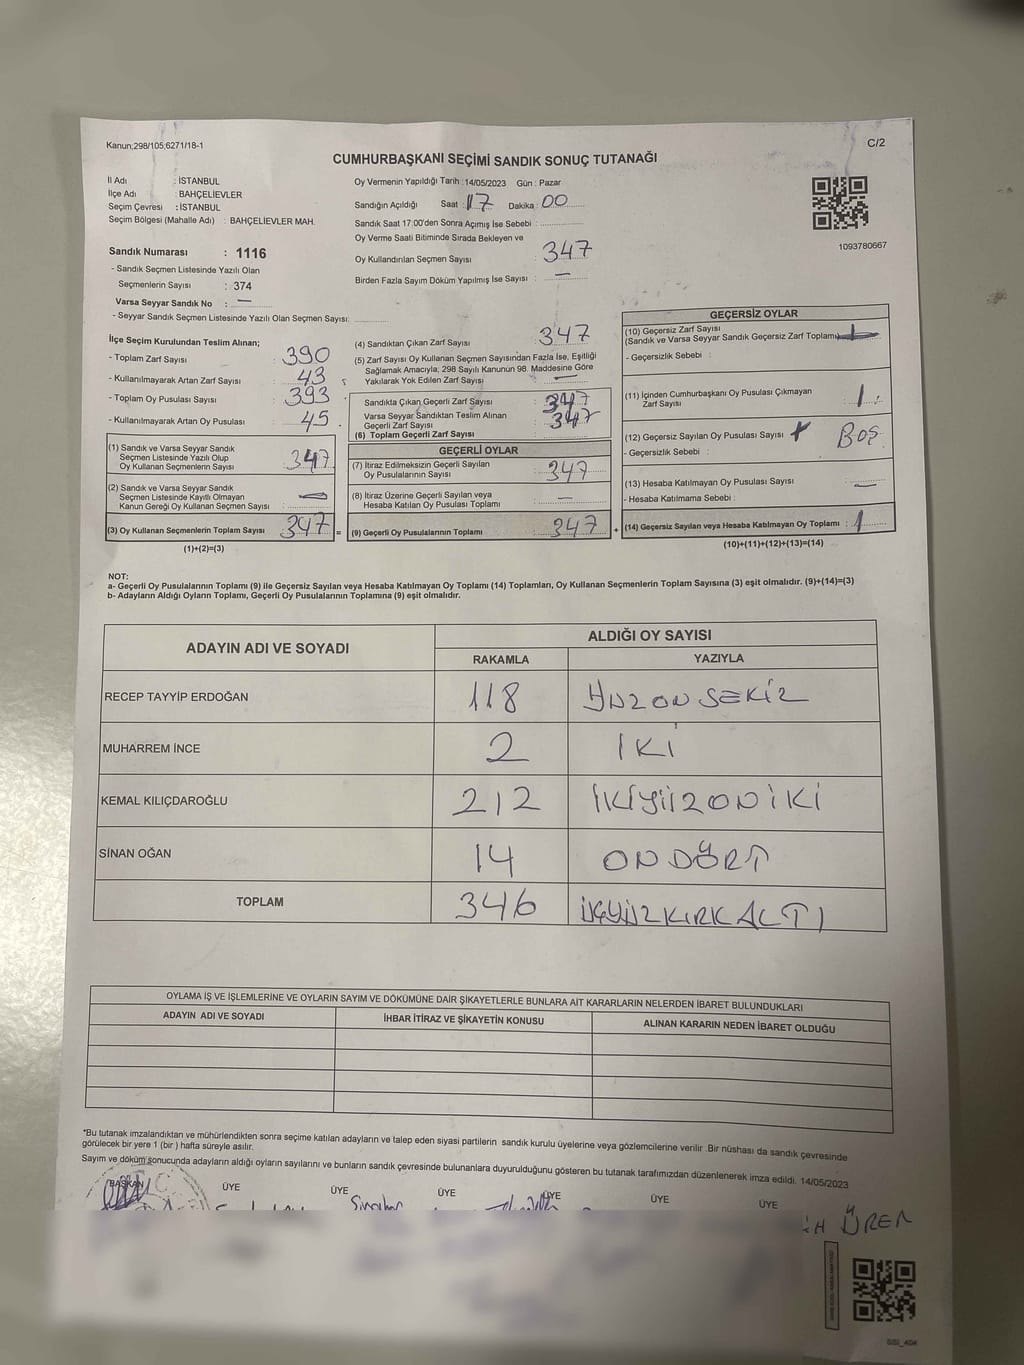 Kanun;298/105;6271/18-1
C/2
CUMHURBAŞKANI SEÇİMİ SANDIK SONUÇ TUTANAĞI
İl Adı : İSTANBUL
İlçe Adı : BAHÇELİEVLER
Seçim Çevresi : İSTANBUL
Seçim Bölgesi (Mahalle Adı) : BAHÇELİEVLER MAH.
Sandık Numarası : 1116
- Sandık Seçmen Listesinde Yazılı Olan
Seçmenlerin Sayısı : 374
Varsa Seyyar Sandık No : —
- Seyyar Sandık Seçmen Listesinde Yazılı Olan Seçmen Sayısı:
Oy Vermenin Yapıldığı Tarih :14/05/2023 Gün : Pazar
Sandığın Açıldığı Saat : 17 Dakika : 00
Sandık Saat 17:00'den Sonra Açımış İse Sebebi :
Oy Verme Saati Bitiminde Sırada Bekleyen ve
Oy Kullandırılan Seçmen Sayısı : 347
Birden Fazla Sayım Döküm Yapılmış İse Sayısı : —
1093780667
İlçe Seçim Kurulundan Teslim Alınan;
- Toplam Zarf Sayısı : 390
- Kullanılmayarak Artan Zarf Sayısı : 43
- Toplam Oy Pusulası Sayısı : 393
- Kullanılmayarak Artan Oy Pusulası : 45
(1) Sandık ve Varsa Seyyar Sandık
Seçmen Listesinde Yazılı Olup
Oy Kullanan Seçmenlerin Sayısı : 347
(2) Sandık ve Varsa Seyyar Sandık
Seçmen Listesinde Kayıtlı Olmayan
Kanun Gereği Oy Kullanan Seçmen Sayısı : —
(3) Oy Kullanan Seçmenlerin Toplam Sayısı : 347 =
(1)+(2)=(3)
(4) Sandıktan Çıkan Zarf Sayısı : 347
(5) Zarf Sayısı Oy Kullanan Seçmen Sayısından Fazla İse, Eşitliği
Sağlamak Amacıyla; 298 Sayılı Kanunun 98. Maddesine Göre
Yakılarak Yok Edilen Zarf Sayısı : —
Sandıkta Çıkan Geçerli Zarf Sayısı : 347
Varsa Seyyar Sandıktan Teslim Alınan
Geçerli Zarf Sayısı : 347
(6) Toplam Geçerli Zarf Sayısı
GEÇERLİ OYLAR
(7) İtiraz Edilmeksizin Geçerli Sayılan
Oy Pusulalarının Sayısı : 347
(8) İtiraz Üzerine Geçerli Sayılan veya
Hesaba Katılan Oy Pusulası Toplamı : —
(9) Geçerli Oy Pusulalarının Toplamı : 347 +
GEÇERSİZ OYLAR
(10) Geçersiz Zarf Sayısı
(Sandık ve Varsa Seyyar Sandık Geçersiz Zarf Toplamı)
- Geçersizlik Sebebi :
(11) İçinden Cumhurbaşkanı Oy Pusulası Çıkmayan
Zarf Sayısı : 1
(12) Geçersiz Sayılan Oy Pusulası Sayısı : BOŞ
- Geçersizlik Sebebi :
(13) Hesaba Katılmayan Oy Pusulası Sayısı : —
- Hesaba Katılmama Sebebi :
(14) Geçersiz Sayılan veya Hesaba Katılmayan Oy Toplamı : 1
(10)+(11)+(12)+(13)=(14)
NOT:
a- Geçerli Oy Pusulalarının Toplamı (9) ile Geçersiz Sayılan veya Hesaba Katılmayan Oy Toplamı (14) Toplamları, Oy Kullanan Seçmenlerin Toplam Sayısına (3) eşit olmalıdır. (9)+(14)=(3)
b- Adayların Aldığı Oyların Toplamı, Geçerli Oy Pusulalarının Toplamına (9) eşit olmalıdır.
ADAYIN ADI VE SOYADI
ALDIĞI OY SAYISI
RAKAMLA YAZIYLA
RECEP TAYYİP ERDOĞAN 118 YÜZONSEKİZ
MUHARREM İNCE 2 İKİ
KEMAL KILIÇDAROĞLU 212 İKİYÜZONİKİ
SİNAN OĞAN 14 ONDÖRT
TOPLAM 346 ÜÇYÜZKIRKALTI
OYLAMA İŞ VE İŞLEMLERİNE VE OYLARIN SAYIM VE DÖKÜMÜNE DAİR ŞİKAYETLERLE BUNLARA AİT KARARLARIN NELERDEN İBARET BULUNDUKLARI
ADAYIN ADI VE SOYADI İHBAR İTİRAZ VE ŞİKAYETİN KONUSU ALINAN KARARIN NEDEN İBARET OLDUĞU
*Bu tutanak imzalandıktan ve mühürlendikten sonra seçime katılan adayların ve talep eden siyasi partilerin sandık kurulu üyelerine veya gözlemcilerine verilir .Bir nüshası da sandık çevresinde
görülecek bir yere 1 (bir ) hafta süreyle asılır.
Sayım ve döküm sonucunda adayların aldığı oyların sayılarını ve bunların sandık çevresinde bulunanlara duyurulduğunu gösteren bu tutanak tarafımızdan düzenlenerek imza edildi. 14/05/2023
BAŞKAN ÜYE ÜYE ÜYE ÜYE ÜYE ÜYE
ÖREN